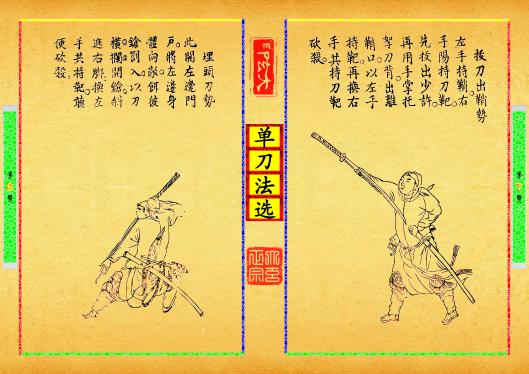 拔刀出鞘勢
左手持鞘右
手陽持刀靶
先拔出少許
再用手掌托
刀背出離
鞘口以左手
持靶再換右
手共持刀靶
砍殺
单刀法选
埋頭刀勢
此開左邊門
戶將左邊身
體向敵餌彼
鎗劄入以刀
橫攔開鎗斜
進右脚換左
手共持靶聽
便砍殺
第
頁
第
頁